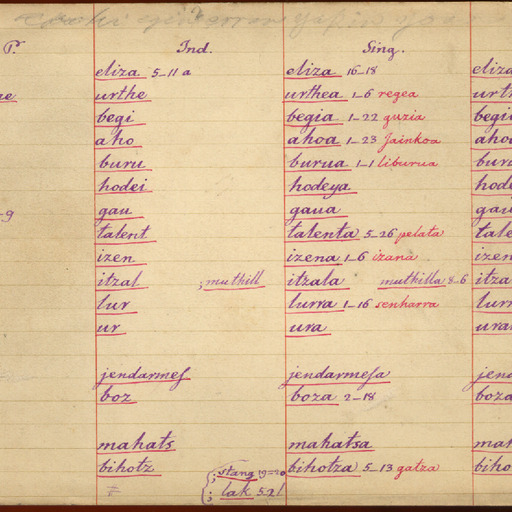 P. Ind. Sing.
eliza 5-11 a eliza 16-18 eliza
urthe urthea 1-6 regea urth
begi begia 1-22 guzia begia
aho ahoa 1-23 Jainkoa ahoa
buru burua 1-1 liburua buru
hodei hodeya hode
-9 gau gaua gau
talent talenta 5-26 pelata tale
izen izena 1-6 izana izen
itzal ; muthill itzala muthilla 8-6 itza
lur lurra 1-16 senharra lurr
ur ura ura
jendarmes jendarmesa jend
boz boza 2-18 boza
mahats mahatsa mah
bihotz ; stang 19=20 bihotza 5-13 gatza biho
; lak 5.21